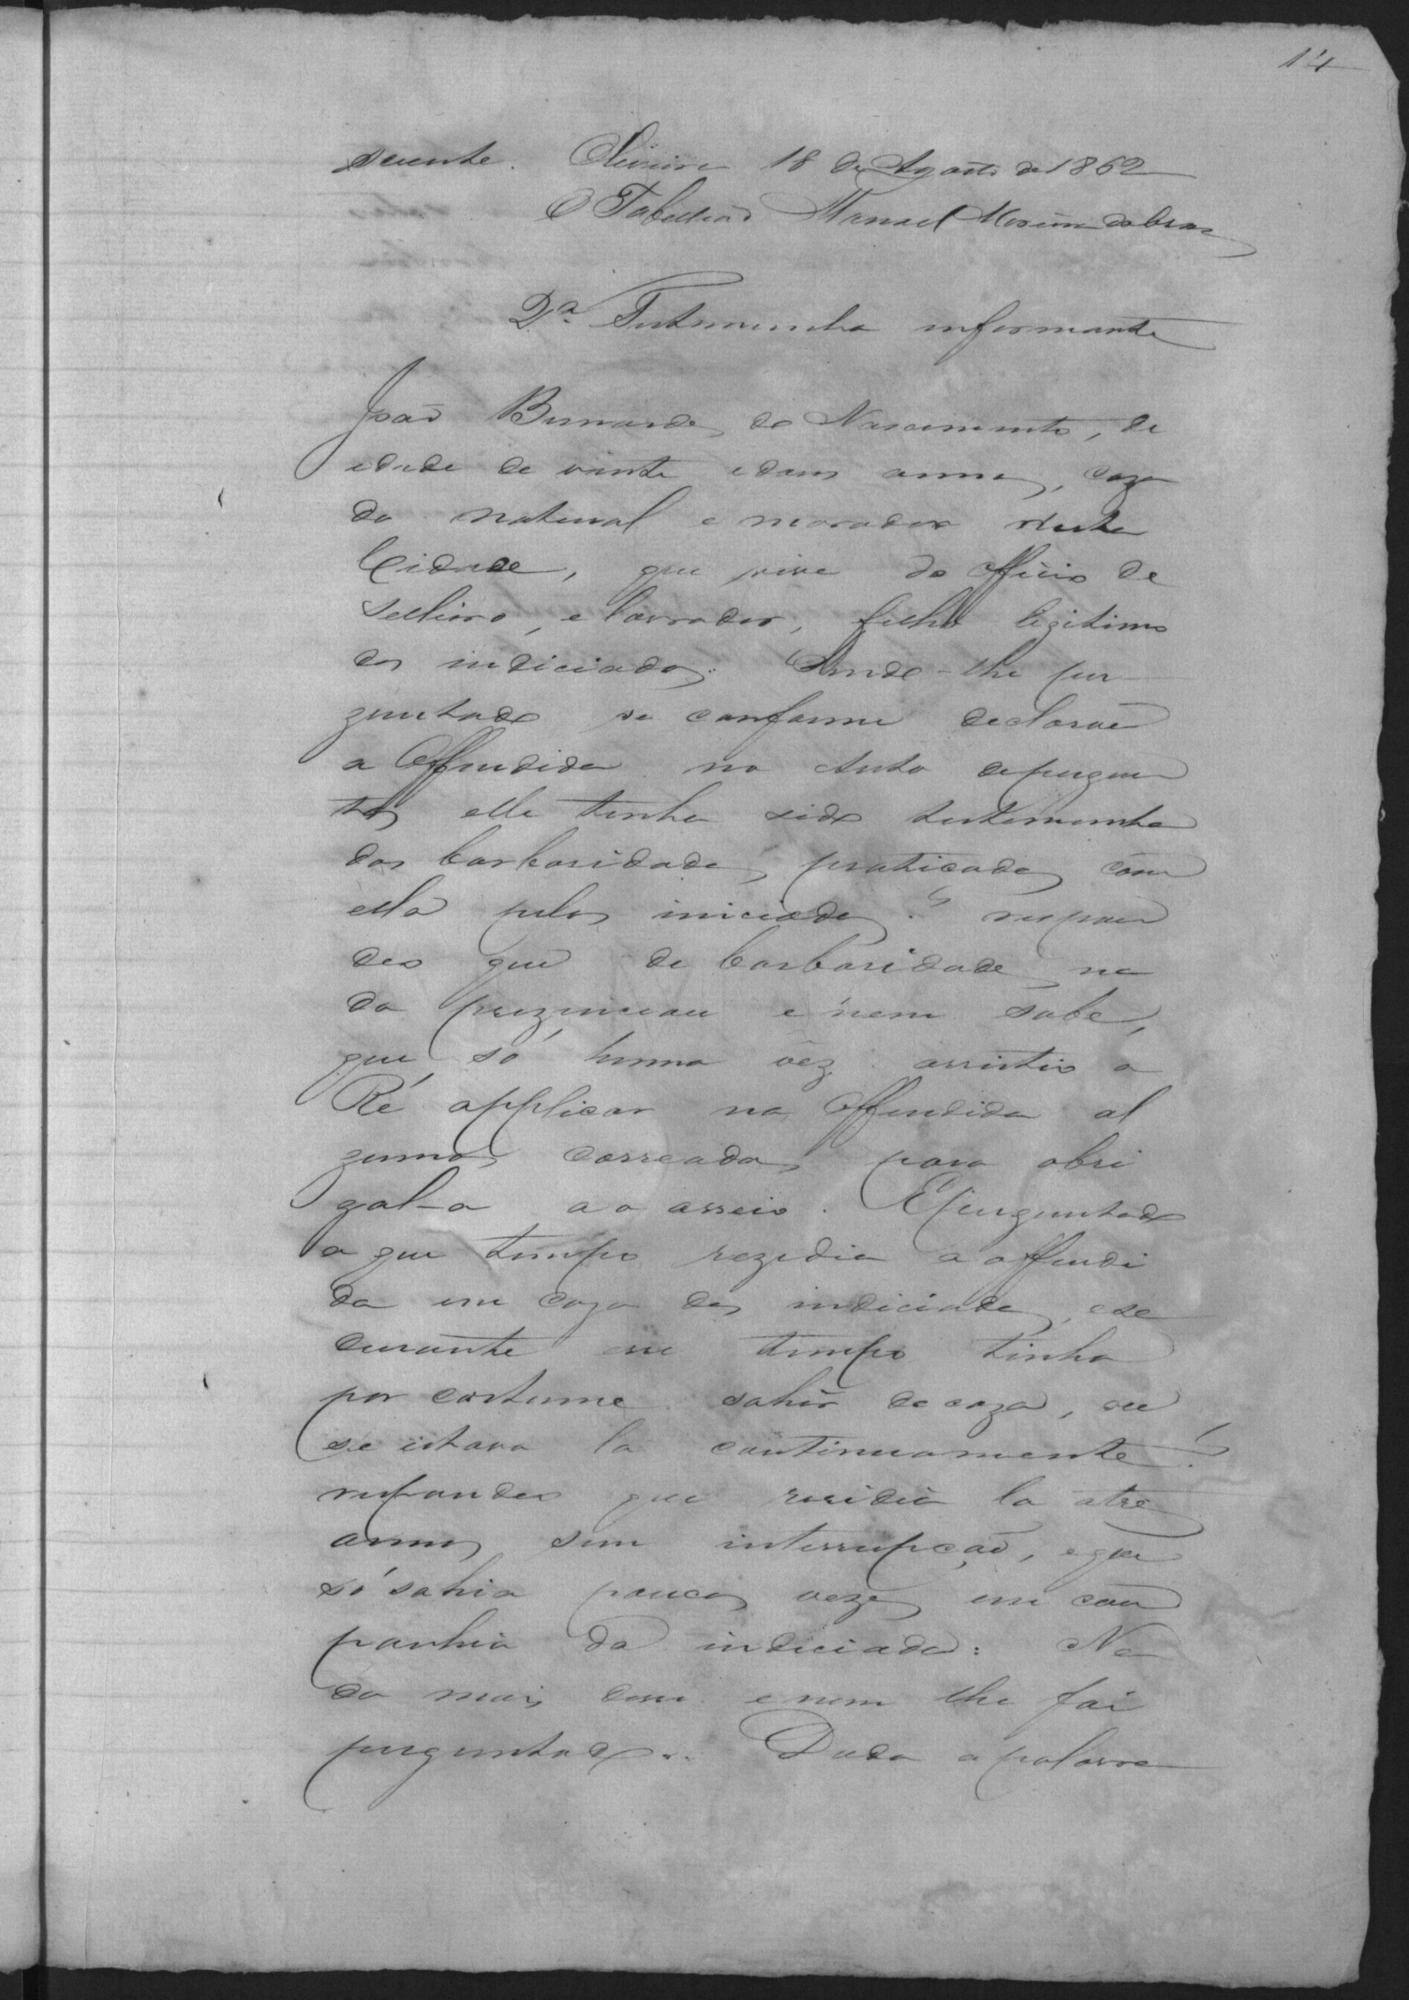 14
sciente. Oliveira 18 de Agosto de 1862
O Tabellião Manoel
2.ª Testemunha informante
João Bernardes do Nascimento, de
idade de vinte e dous annos, caza
do natural e morador nesta
Cidade, que vive do officio de
Selleiro, e lavrador, filho legitimo
dos indiciados. Sendo-lhe per
guntado se conforme declarou
a Offendida no Auto de pergun
tas elle tinha sido testemunha
das barbaridades praticadas com
ella pelos iniciados? respon
deo que de barbaridades na
da prezenciou e nem sabe,
que só huma vez assistio a
Ré applicar na Offendida al
gumas correadas para obri
gal-a ao asseio. E perguntado
a que tempo rezedia a offendi
da em caza dos indiciados, e se
durante esse tempo tinha
por costume sahir de caza, ou
se estava lá continuamente?
respondeo que residia la a tres
annos sem interrupção, e que
só sahia poucas vezes em com
panhia da indiciada: Na
da mais disse e nem lhe foi
perguntado. Dada a palavra